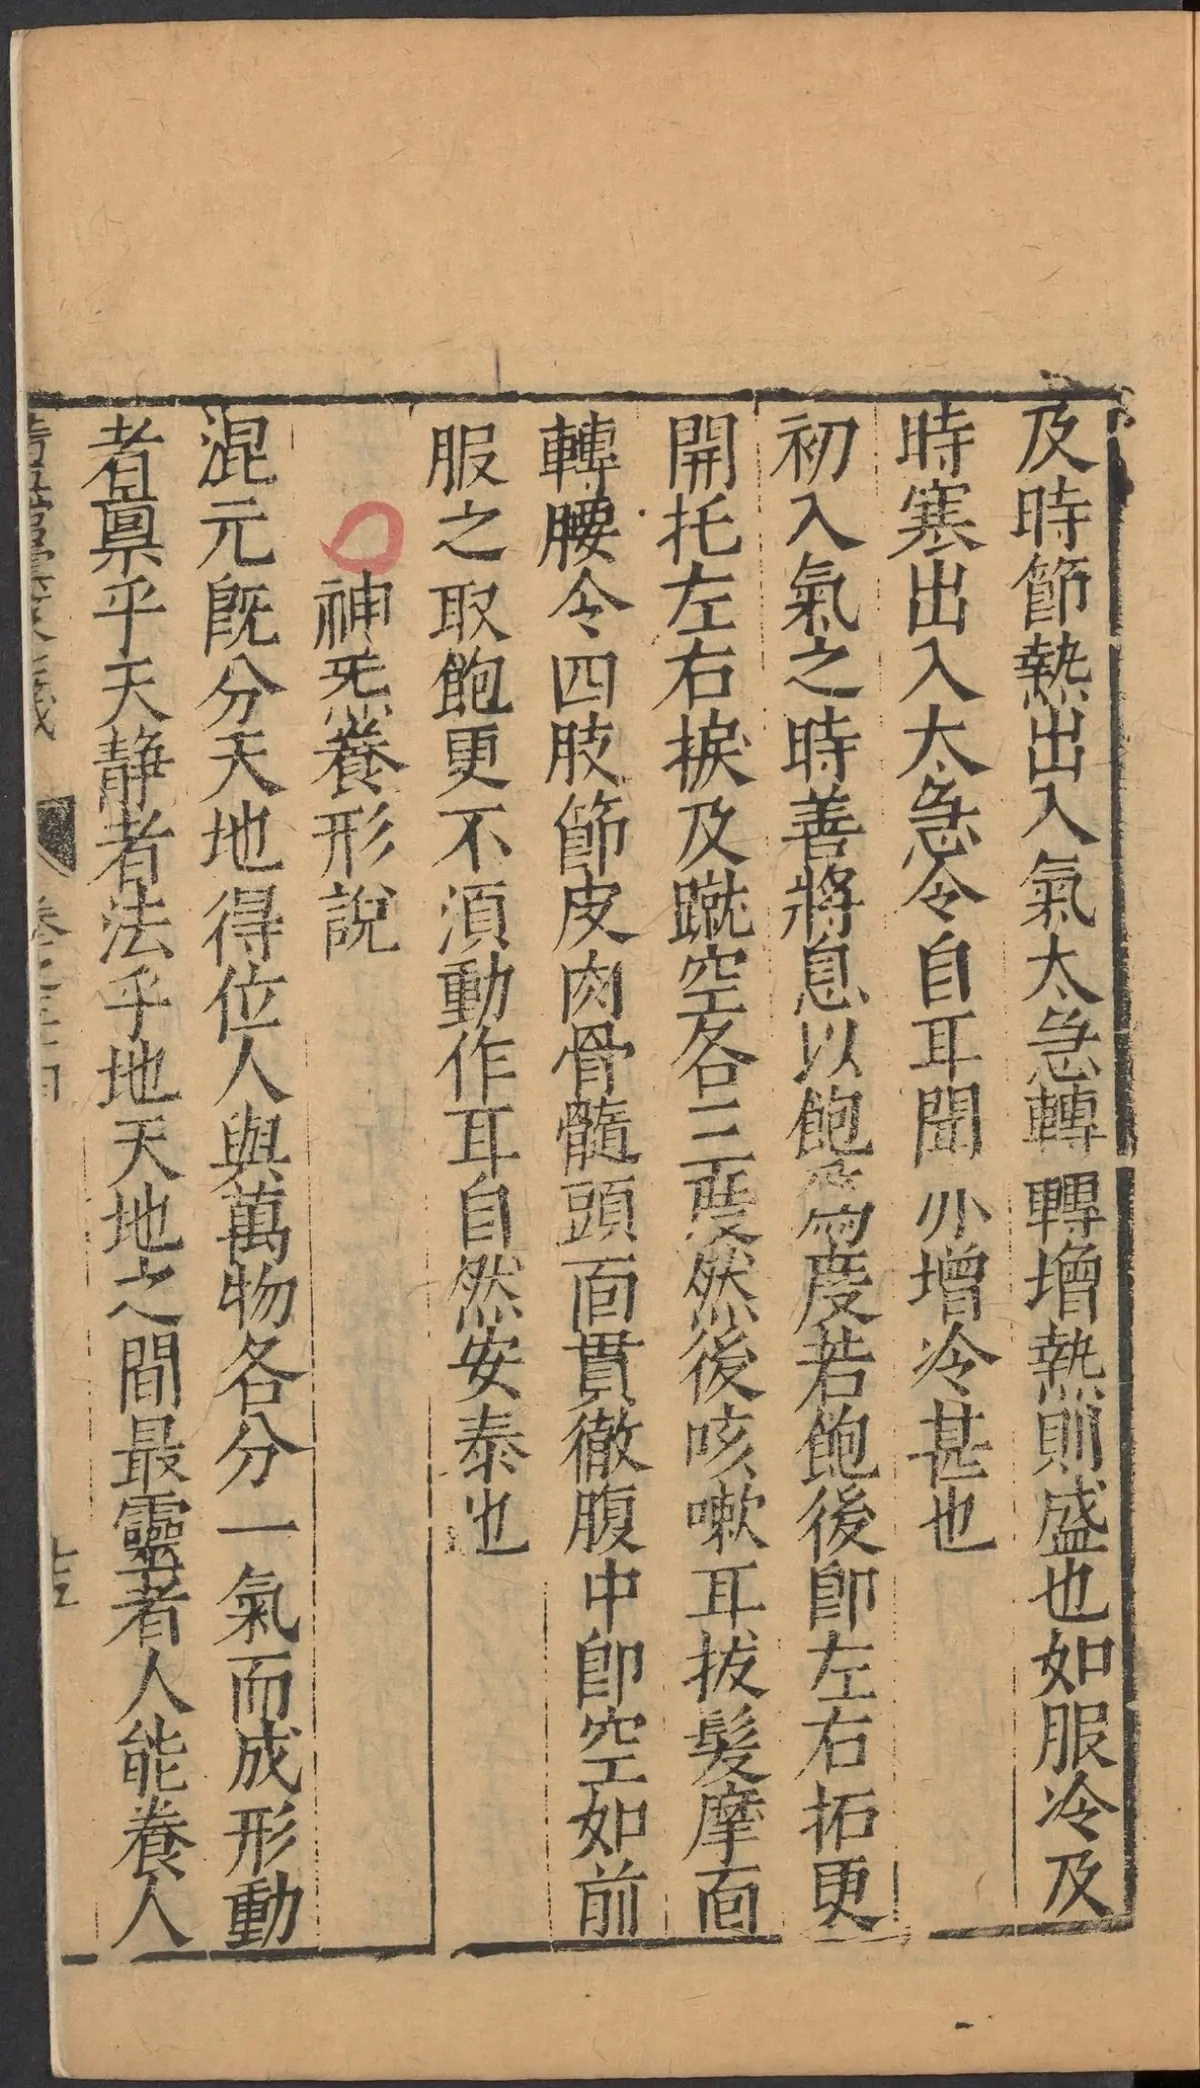 及時節熱出入氣太急轉轉增熱則盛也如服冷及
時寒出入太急令自耳聞㣲增冷甚也
初入氣之時善將息以飽爲度若飽後卽左右拓更
開托左右捩及蹴空各三度然後咳嗽耳拔髮摩面
轉腰令四肢節皮肉骨髓頭面貫徹腹中卽空如前
服之取飽更不湏動作耳自然安泰也
神炁養形說
混元旣分天地得位人與萬物各分一氣而成形動
者稟乎天静者法乎地天地之間最靈者人能養人